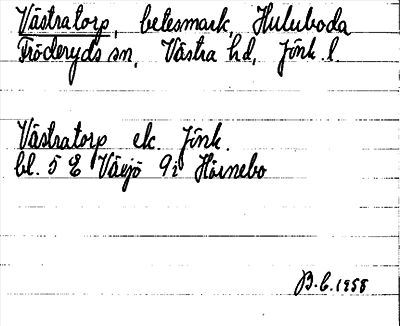 Västratorp, betesmark, Huluboda
Fröderyds sn, Västra hd, Jönk. l.
Västratorp ek. Jönk.
bl. 5 E Växjö 9i Hörnebo
B.C. 1958